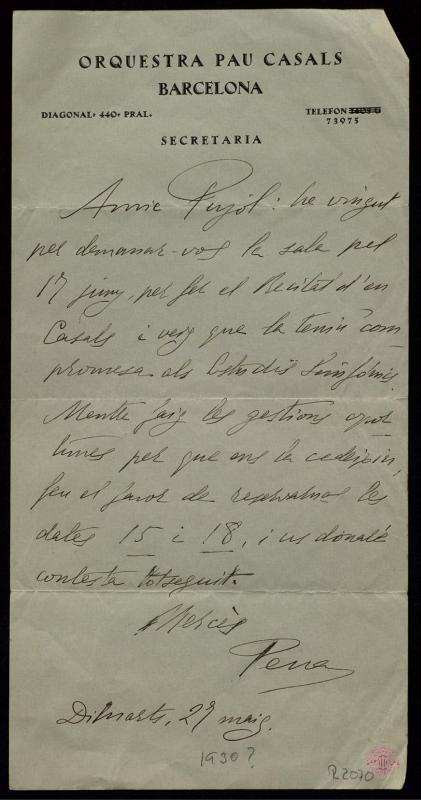 ORQUESTRA PAU CASALS
BARCELONA
DIAGONAL, 440, PRAL.
TELEFON
73975
SECRETARIA
Amic Pujol: he vingut
per demanar-vos la sala pel
17 juny, per fer el Recital d'en
Casals i veig que la teniu com
promesa als Estudis Simfònics.
Mentre faig les gestions opor
tunes per que ens la cedeixin,
feu el favor de reservarnos les
dates 15 i 18, i us donaré
contesta totseguit.
Mercès
Pena
Dimarts, 27 maig.
1930?
R 2070